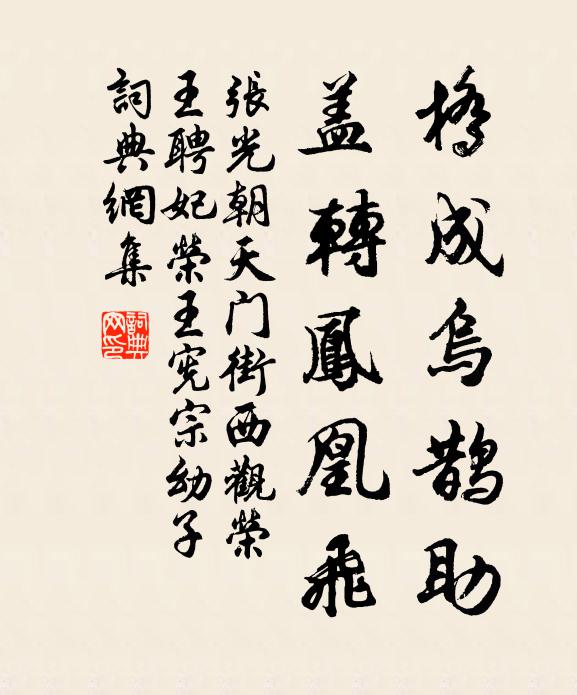 橋成烏鵲助
盖轉鳳凰飛
張光朝天门街西觀榮
王聘妃榮王憲宗幼子
詞典網集
詞典
网印